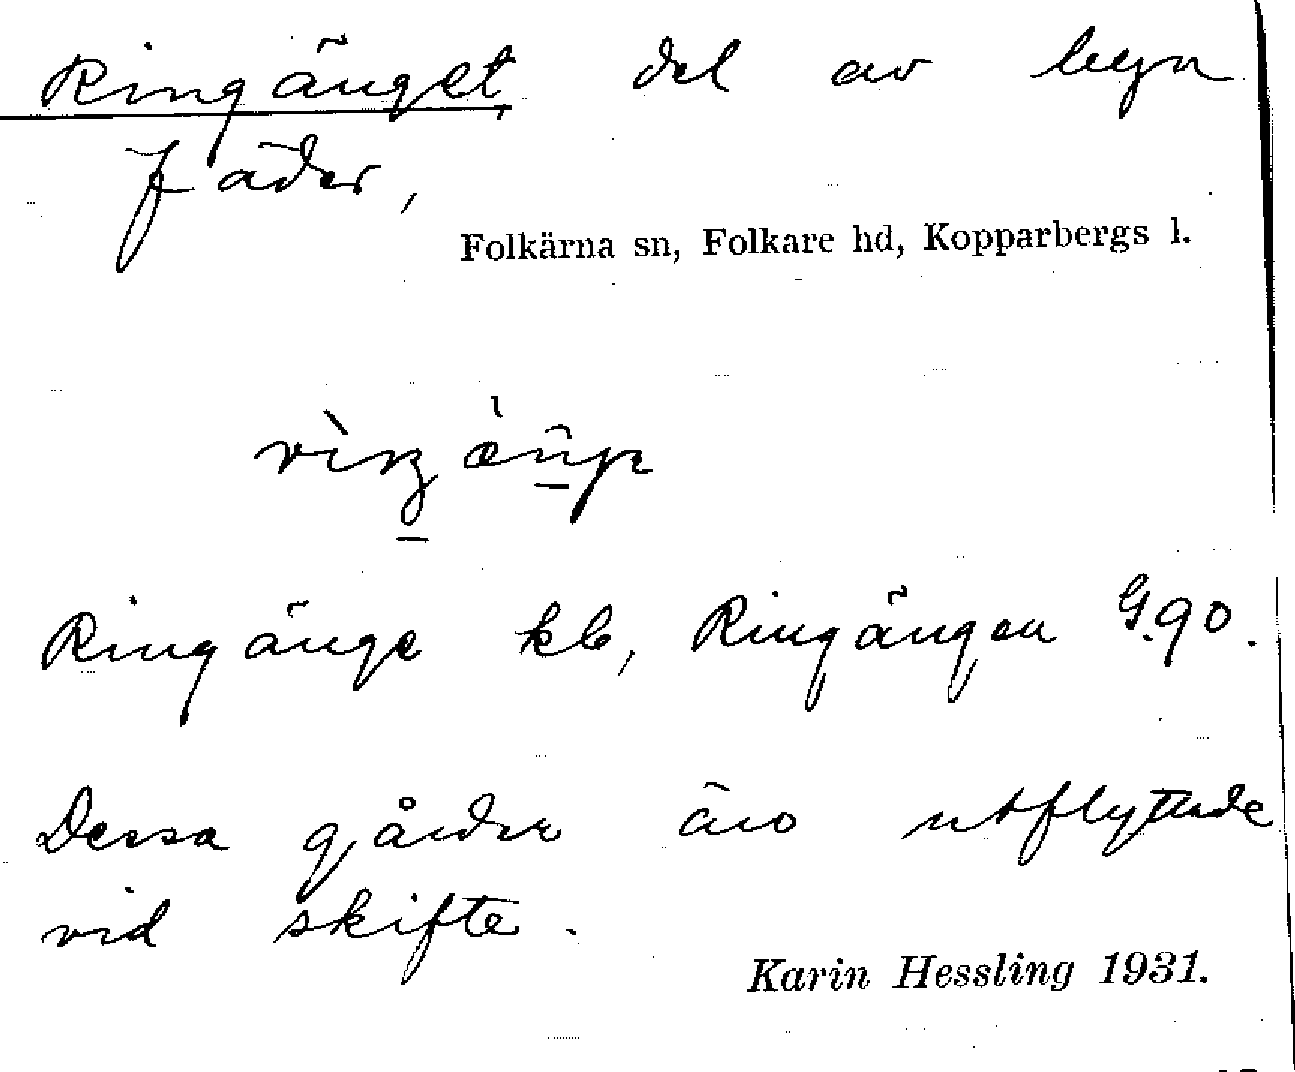 Ringänget del av byn
Fäder,
Folkärna sn, Folkare hd, Kopparbergs l.
Ringänge kb, Ringängen G.90.
Dessa gårdar äro utflyttade
vid skifte.
Karin Hessling 1931.